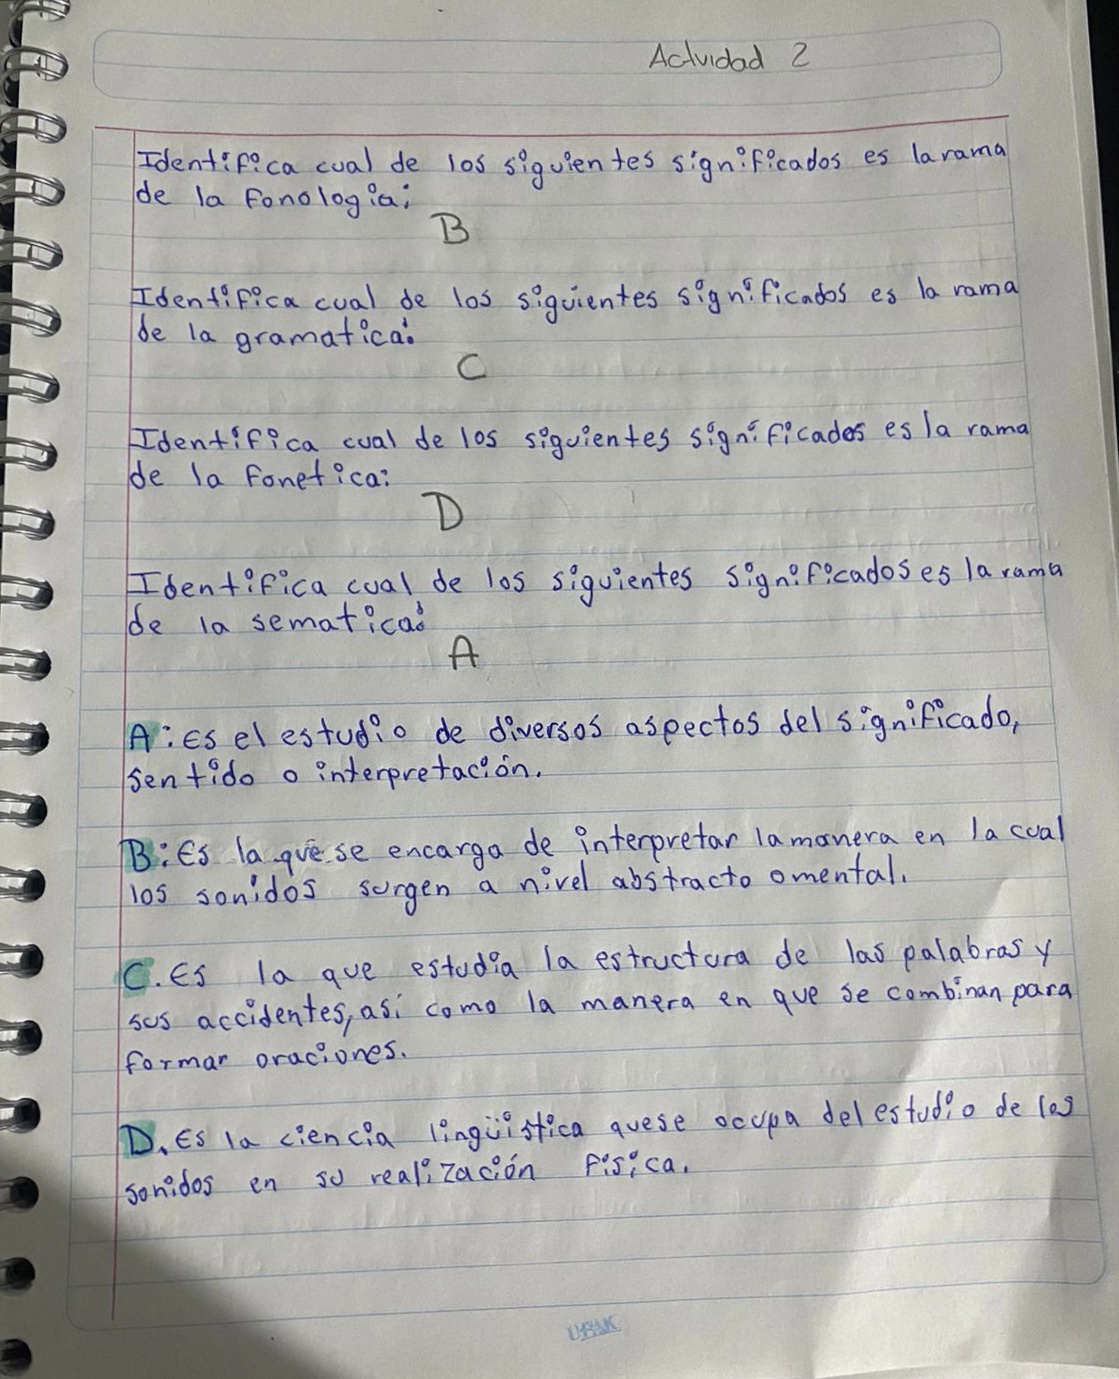 Actividad 2
Identifica cual de los siguientes significados es la rama
de la fonologia:
B
Identifica cual de los siguientes significados es la rama
de la gramatica:
C
Identifica cual de los siguientes significados es la rama
de la fonetica:
D
Identifica cual de los siguientes significados es la rama
de la sematica:
A
A: Es el estudio de diversos aspectos del significado,
sentido o interpretación.
B: Es la que se encarga de interpretar la manera en la cual
los sonidos surgen a nivel abstracto o mental.
C. Es la que estudia la estructura de las palabras y
sus accidentes, así como la manera en que se combinan para
formar oraciones.
D. Es la ciencia lingüistica que se ocupa del estudio de los
sonidos en su realización física.